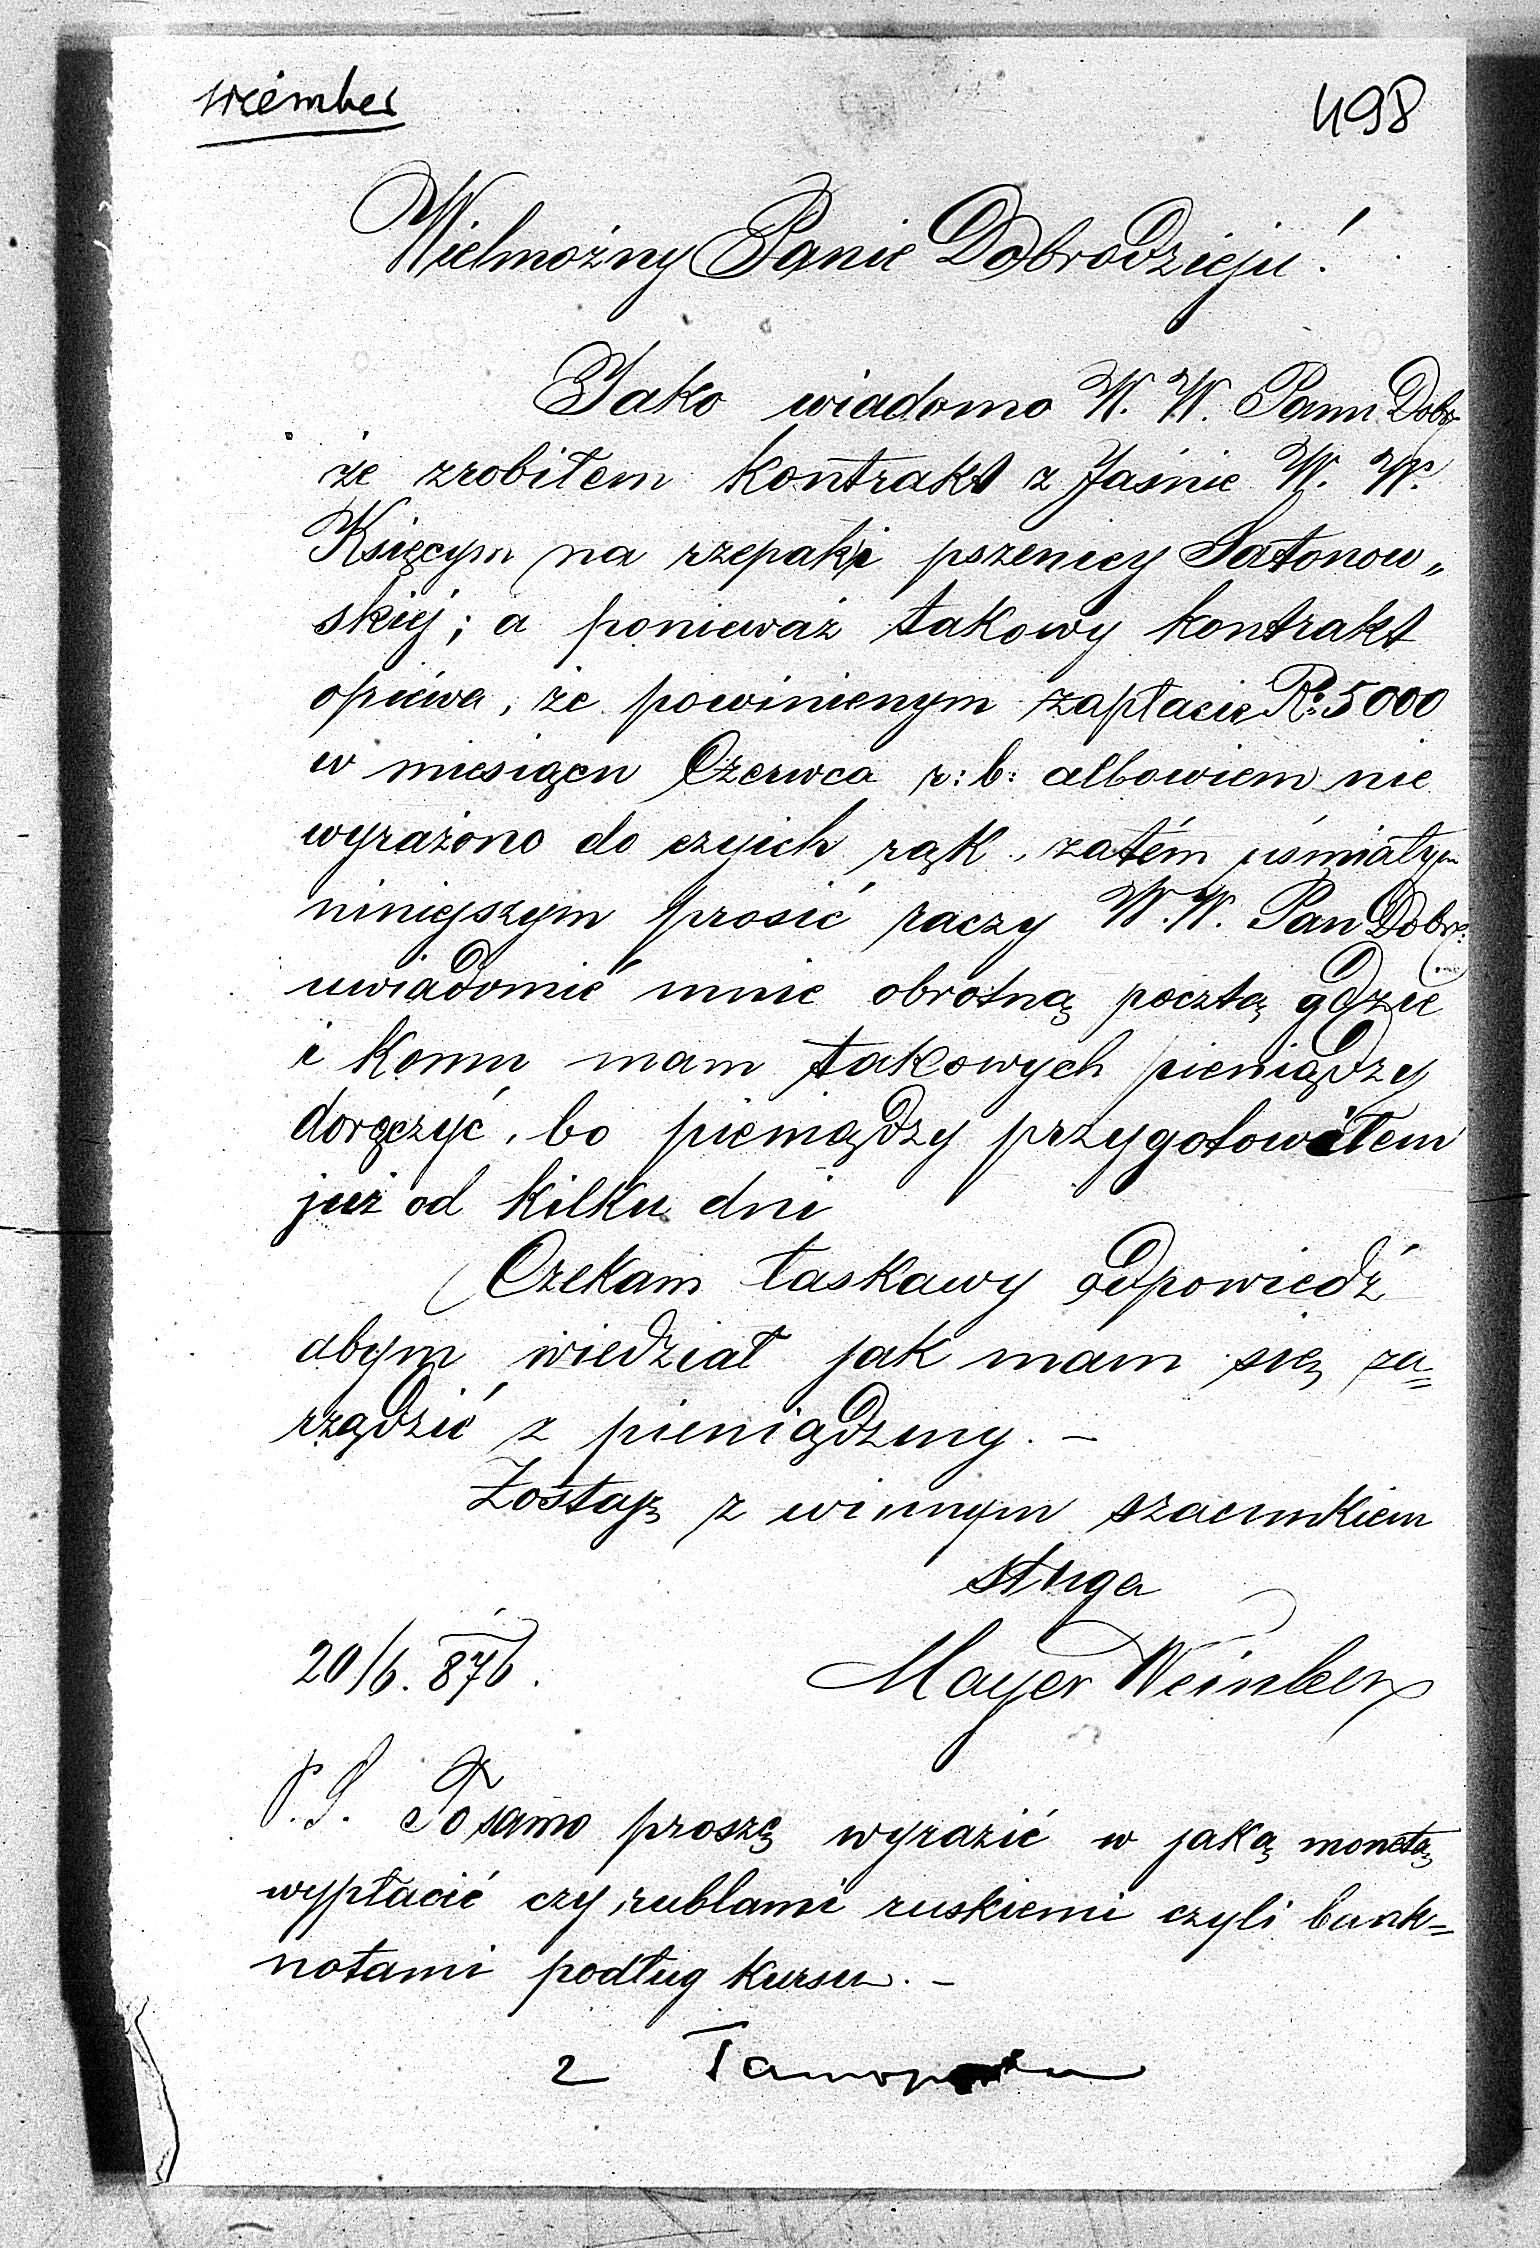 498
Wielmożny Panie Dobrodzieju!
Jako wiadomo W. W. Panu Dobr
że zrobiłem kontrakt z Jaśnie W. W.
Księcym na rzepak i pszenicy Satonow„
skiej; a ponieważ takowy kontrakt
opiéwa, że powinienym zapłacić R: 5000
w miesiącu Czerwca r: b: albowiem nie
wyrażono do czyich rąk, zatém uśmiałym
niniejszym prosić raczy W. W. Pan Dobr:
uwiadomić mnie obrotną pocztą gdzie
i komu mam takowych pieniądzy
doręczyć, bo pieniądzy przygotowałem
już od kilku dni
Czekam łaskawy odpowiedź
abym wiedział jak mam się za=
rządzić z pieniądzmy. –
Zostaję z winnym szacunkiem
sługa
20/6. 876. Mayer Weinberg
P.S. To samo proszę wyrazić w jaką monetą
wypłacić czy rublami ruskiemi czyli bank=
notami podług kursu. –